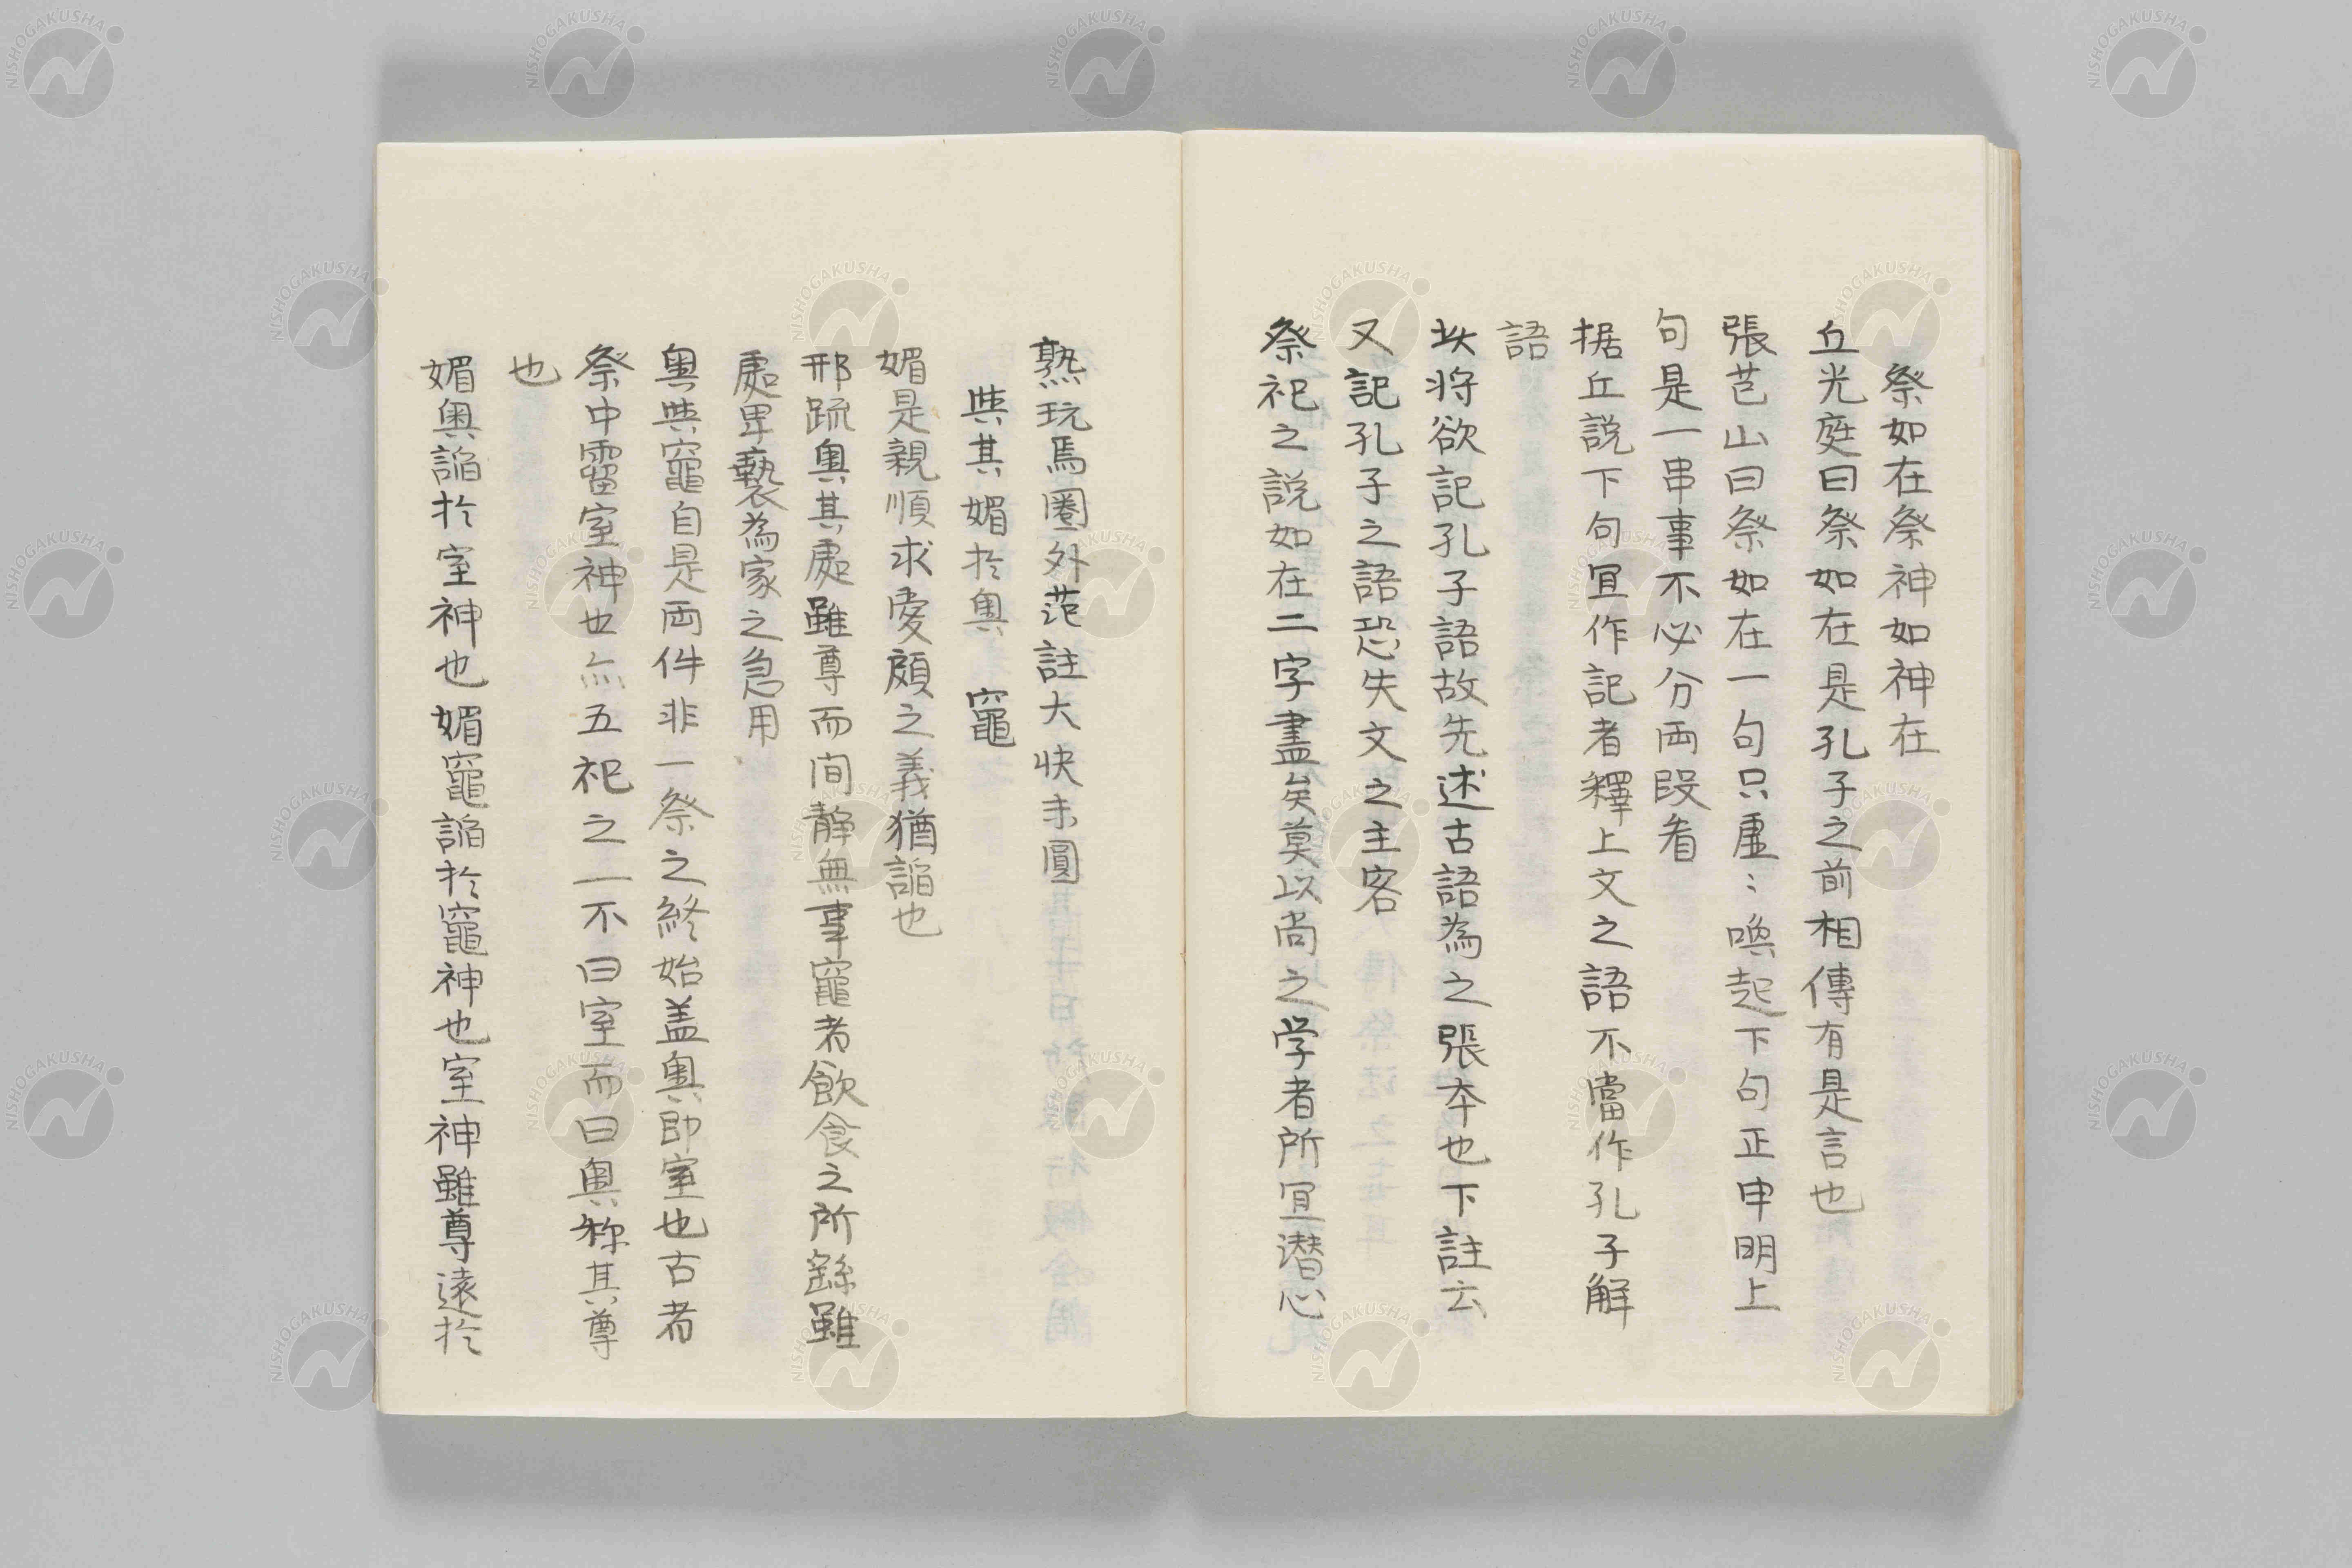 祭如在祭神如神在
丘光庭曰祭如在是孔子之前相傳有是言也
張芑山曰祭如在一句只虛〻喚起下句正申明上
句是一串事不必分両段看
据丘説下句宜作記者釋上文之語不當作孔子解
語
将欲記孔子語故先述古語為之張本也下註云
又記孔子之語恐失文之主客
祭祀之説如在二字盡矣莫以尚之学者所宜潜心
熟玩焉圏外范註大快未圓
與其媚於奥　竈
媚是親順求愛顧之義猶諂也
邢疏奥其處雖尊而间静無事竈者飲食之所繇雖
處卑褻為家之急用
奥與竈自是両件非一祭之終始盖奥即室也古者
祭中霤室神也亦五祀之一不曰室而曰奥称其尊
也
媚奥諂於室神也媚竈諂於竈神也室神雖尊遠於
NISHOGAKUSHA